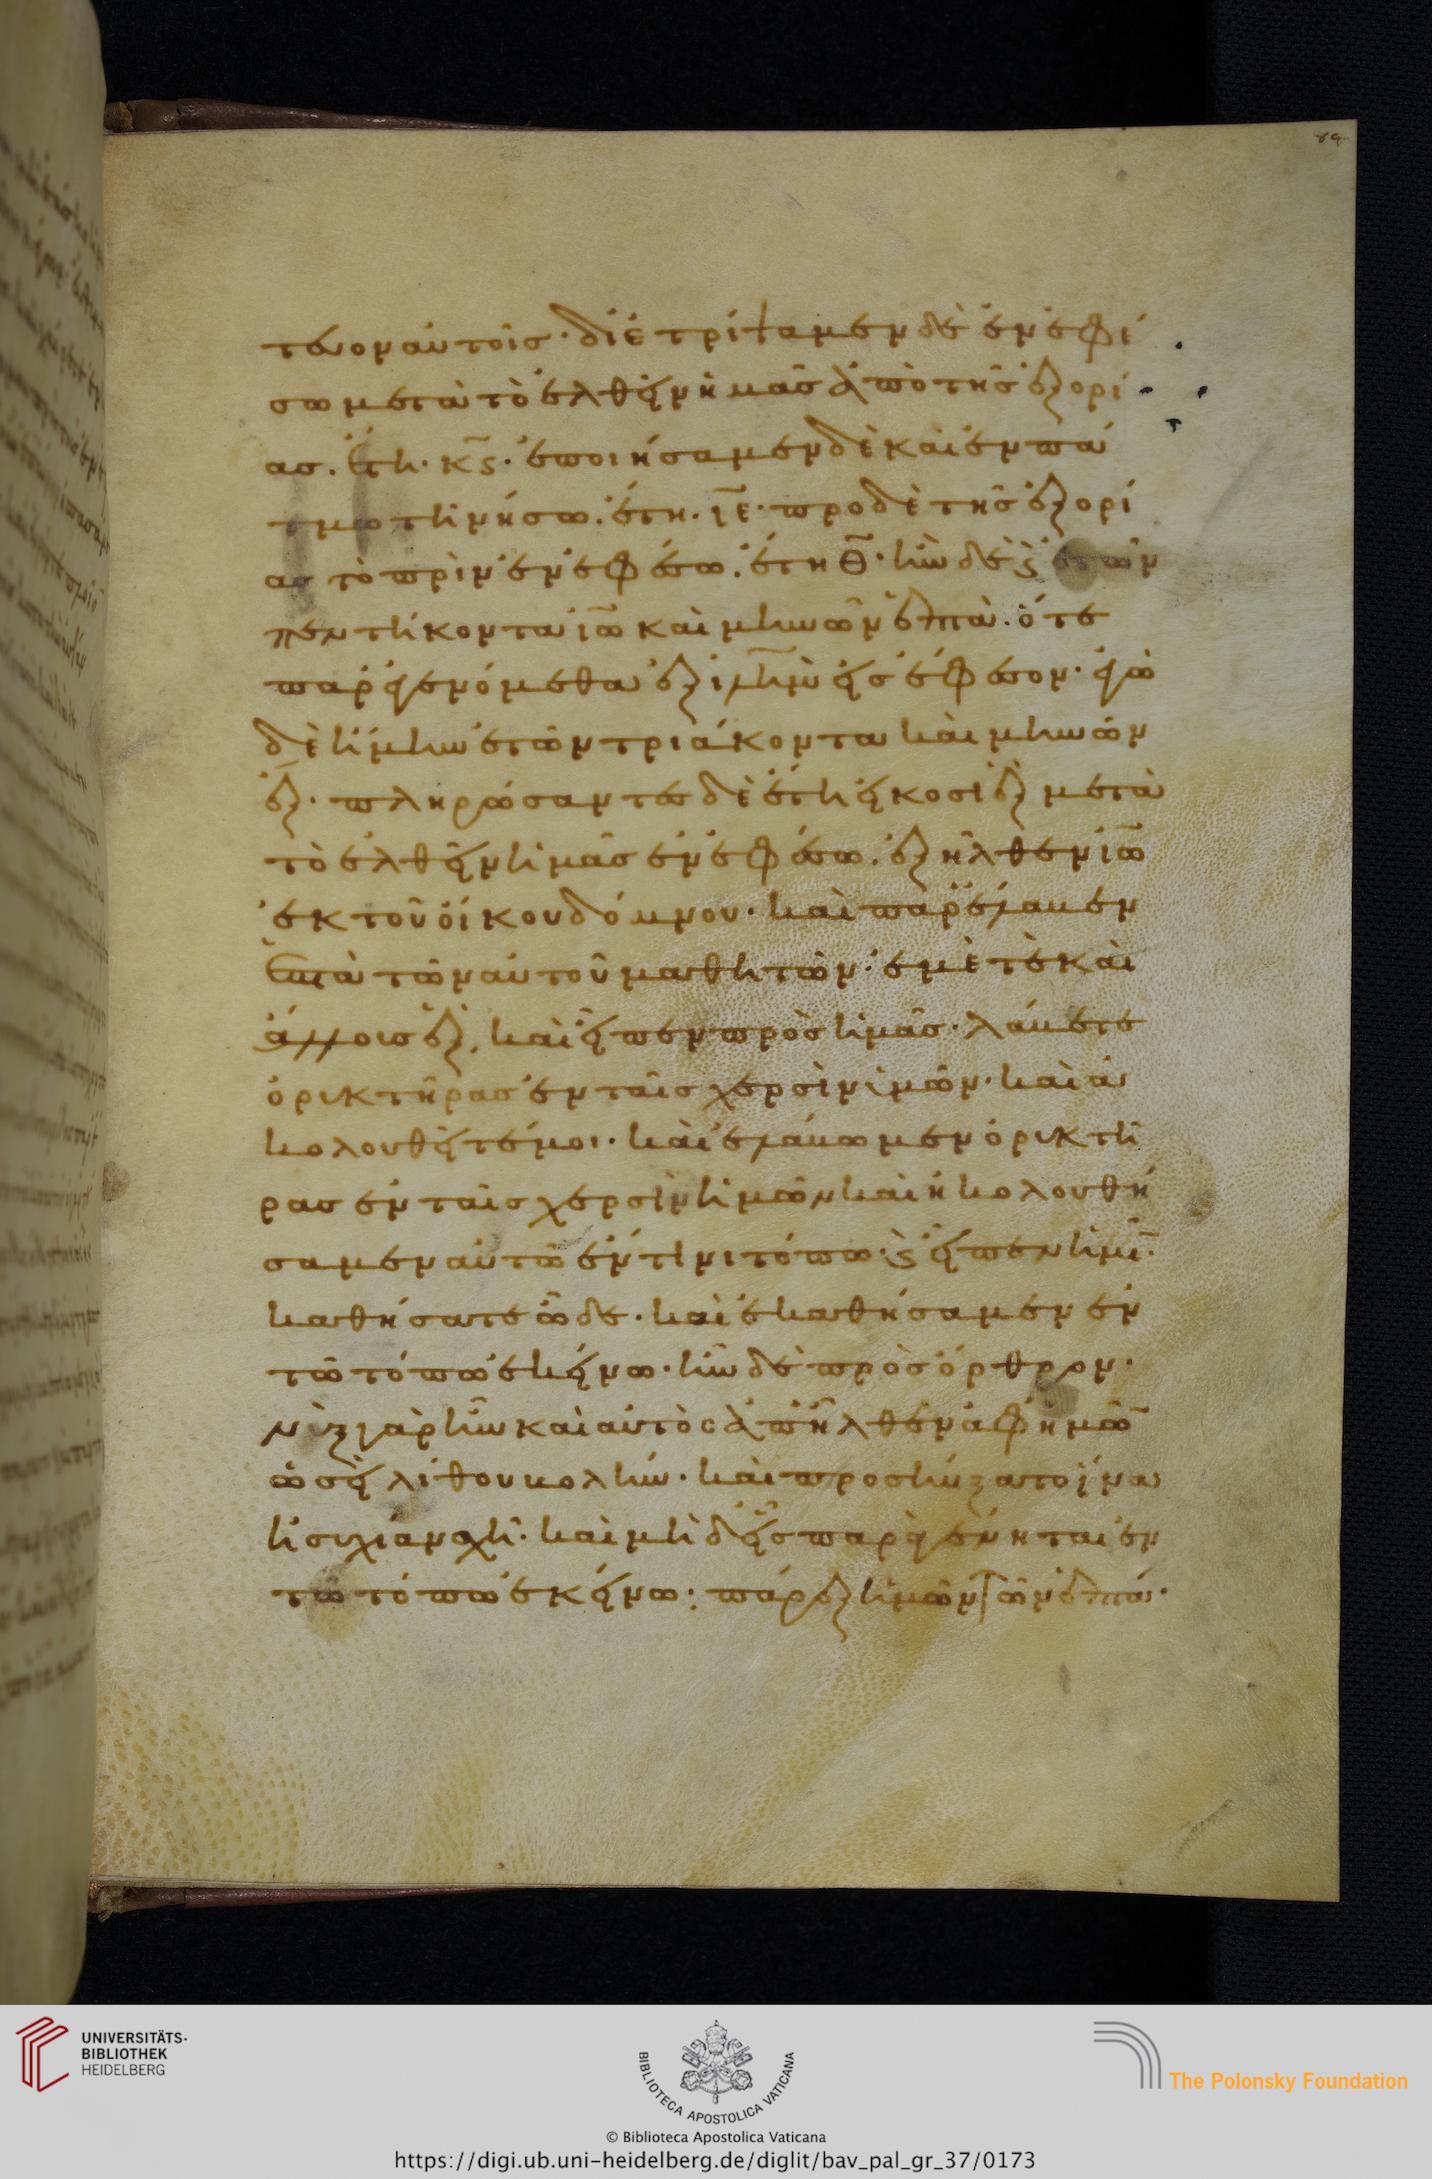 84
τευον αὐτοῖσ· διετρίψαμεν δὲ ἐν ἐφέ
σω μετὰ τὸ ἐλθεῖν ἡμᾶσ ἀπὸ τῆσ ἐξορί
ασ. ἔτη· κϛ· ἐποιήσαμεν δὲ καὶ ἐν πά
τμω τῆ νήσω. ἔτη. ιε· προ δὲ τῆσ ἐξορί
ασ τὸ πρὶν ἐν ἐφέσω. ἔτη θ· ἦν δὲ ϛ ἐτῶν
πεντήκοντα ιω καὶ μηνῶν ἑπτὰ. ὅτε
παρεγενόμεθα ἐξ ἱλημ εἰσ ἔφεσον· ἐγὼ
δὲ ἤμην ἐτῶν τριάκοντα καὶ μηνῶν
ἕξ· πληρώσαντεσ δὲ ἔτη εἴκοσι ἓξ μετὰ
τὸ ἐλθεῖν ἡμᾶσ ἐν ἐφέσω. ἐξῆλθεν ιω
ἐκ τοῦ οἴκου δόμνου· καὶ παρέλαβεν
ἑπτὰ τῶν αὐτοῦ μαθητῶν· ἐμὲ τὲ καὶ
ἄλλουσ ἓξ, καὶ εἶπεν πρὸσ ἡμᾶσ· λάβετε
ὀρυκτῆρασ ἐν ταῖσ χερσὶν ὑμῶν· καὶ ἀ
κολουθεῖτέ μοι· καὶ ἐλάβωμεν ὀρυκτῆ
ρασ ἐν ταῖσ χερσὶν ἡμῶν καὶ ἠκολουθή
σαμεν αὐτῶ ἔν τινι τόπω· ϛ εἶπεν ἡμῖ·
καθήσατε ὧδε· καὶ ἐκαθήσαμεν ἐν
τῶ τόπω ἐκείνω· ἦν δὲ πρὸσ ὄρθρον·
νὺξ γὰρ ἦν καὶ αὐτὸσ ἀπῆλθεν ἀφ ἡμῶ
ὡσεὶ λίθου βολήν· καὶ προσηύξατο ἵνα
ἡσυχίαν ἄχῆ· καὶ μὴ δεῖσ παρεγένηται ἐν
τῶ τόπω ἐκείνω· πάρεξ ἡμῶν τῶν ἑπτά·
UNIVERSITÄTS-
BIBLIOTHEK
HEIDELBERG
BIBLIOTECA APOSTOLICA VATICANA
The Polonsky Foundation
© Biblioteca Apostolica Vaticana
https://digi.ub.uni-heidelberg.de/diglit/bav_pal_gr_37/0173